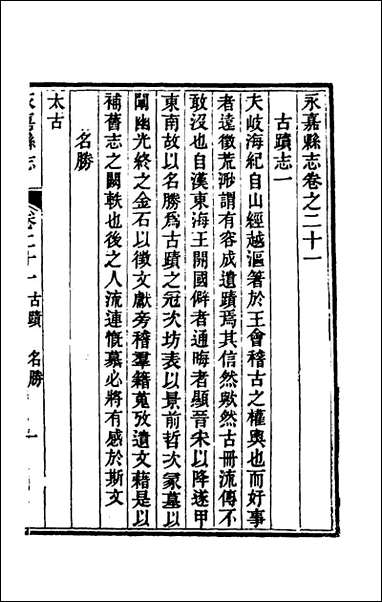 永嘉縣志卷之二十一
古蹟志一
夫岐海紀自山經越漚箸於王會稽古之權輿也而好事
者遠徵荒渺謂有容成遺蹟焉其信然歟然古冊流傳不
敢沒也自漢東海王開國僻者通晦者顯晉宋以降遂甲
東南故以名勝爲古蹟之冠次坊表以景前哲次冢墓以
闡幽光終之金石以徵文獻旁稽羣籍蒐攷遺文藉是以
補舊志之闕軼也後之人流連慨慕必將有感於斯文
名勝
太古
永嘉縣志
卷二十一 古蹟 名勝 一